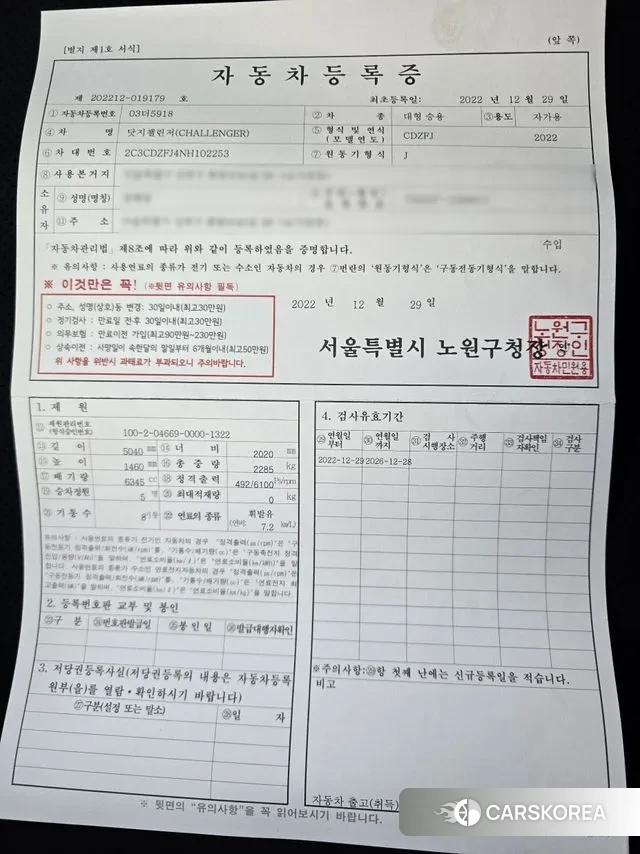 [별지 제1호 서식]
(앞 쪽)
자동차등록증
제 202212-019179 호 최초등록일: 2022 년 12 월 29 일
① 자동차등록번호 03더5918 ② 차 종 대형 승용 ③용도 자가용
④ 차 명 닷지챌린저(CHALLENGER) ⑤ 형식 및 연식 (모델연도) CDZFJ 2022
⑥ 차 대 번 호 2C3CDZFJ4NH102253 ⑦ 원 동 기 형 식 J
⑧ 사 용 본 거 지
소유자 ⑨ 성명(명칭)
⑪ 주 소
「자동차관리법」 제8조에 따라 위와 같이 등록하였음을 증명합니다. 수입
※ 유의사항 : 사용연료의 종류가 전기 또는 수소인 자동차의 경우 ⑦란의 '원동기형식'은 '구동전동기형식'을 말합니다.
※ 이것만은 꼭! (※뒷면 유의사항 필독)
2022 년 12 월 29 일
○ 주소, 성명(상호)등 변경: 30일이내(최고30만원)
○ 정기검사 : 만료일 전후 30일이내(최고30만원)
○ 의무보험 : 만료이전 가입(최고90만원~230만원)
○ 상속이전 : 사망일이 속한달의 말일부터 6개월이내(최고50만원)
위 사항을 위반시 과태료가 부과되오니 주의바랍니다.
서울특별시 노원구청장
노원구
청장인
자동차민원용
1. 제 원
제원관리번호 (형식승인번호) 100-2-04669-0000-1322
⑬ 길 이 5040 mm ⑭ 너 비 2020 mm
⑮ 높 이 1460 mm ⑯ 총 중 량 2285 kg
⑰ 배 기 량 6345 cc ⑱ 정 격 출 력 492/6100 Ps/rpm
⑲ 승차정원 5 명 ⑳ 최대적재량 0 kg
㉑ 기 통 수 8기통 ㉒ 연료의 종류 휘발유 (연비: 7.2 km/L)
2. 등록번호판 교부 및 봉인
㉓구 분 ㉔번호판발급일 ㉕봉 인 일 ㉖발급대행자확인
3. 저당권등록사실(저당권등록의 내용은 자동차등록
원부(을)를 열람·확인하시기 바랍니다)
㉗구분(설정 또는 말소) ㉘일 자
4. 검사유효기간
㉙연월일부터 ㉚연월일까지 ㉛검 사 시행장소 ㉜주행거리 ㉝검사책임자확인 ㉞검사구분
2022-12-29 2026-12-28
※주의사항:㉙항 첫째 난에는 신규등록일을 적습니다.
비고
자동차 출고(취득)
※ 뒷면의 "유의사항"을 꼭 읽어보시기 바랍니다.
CARSKOREA